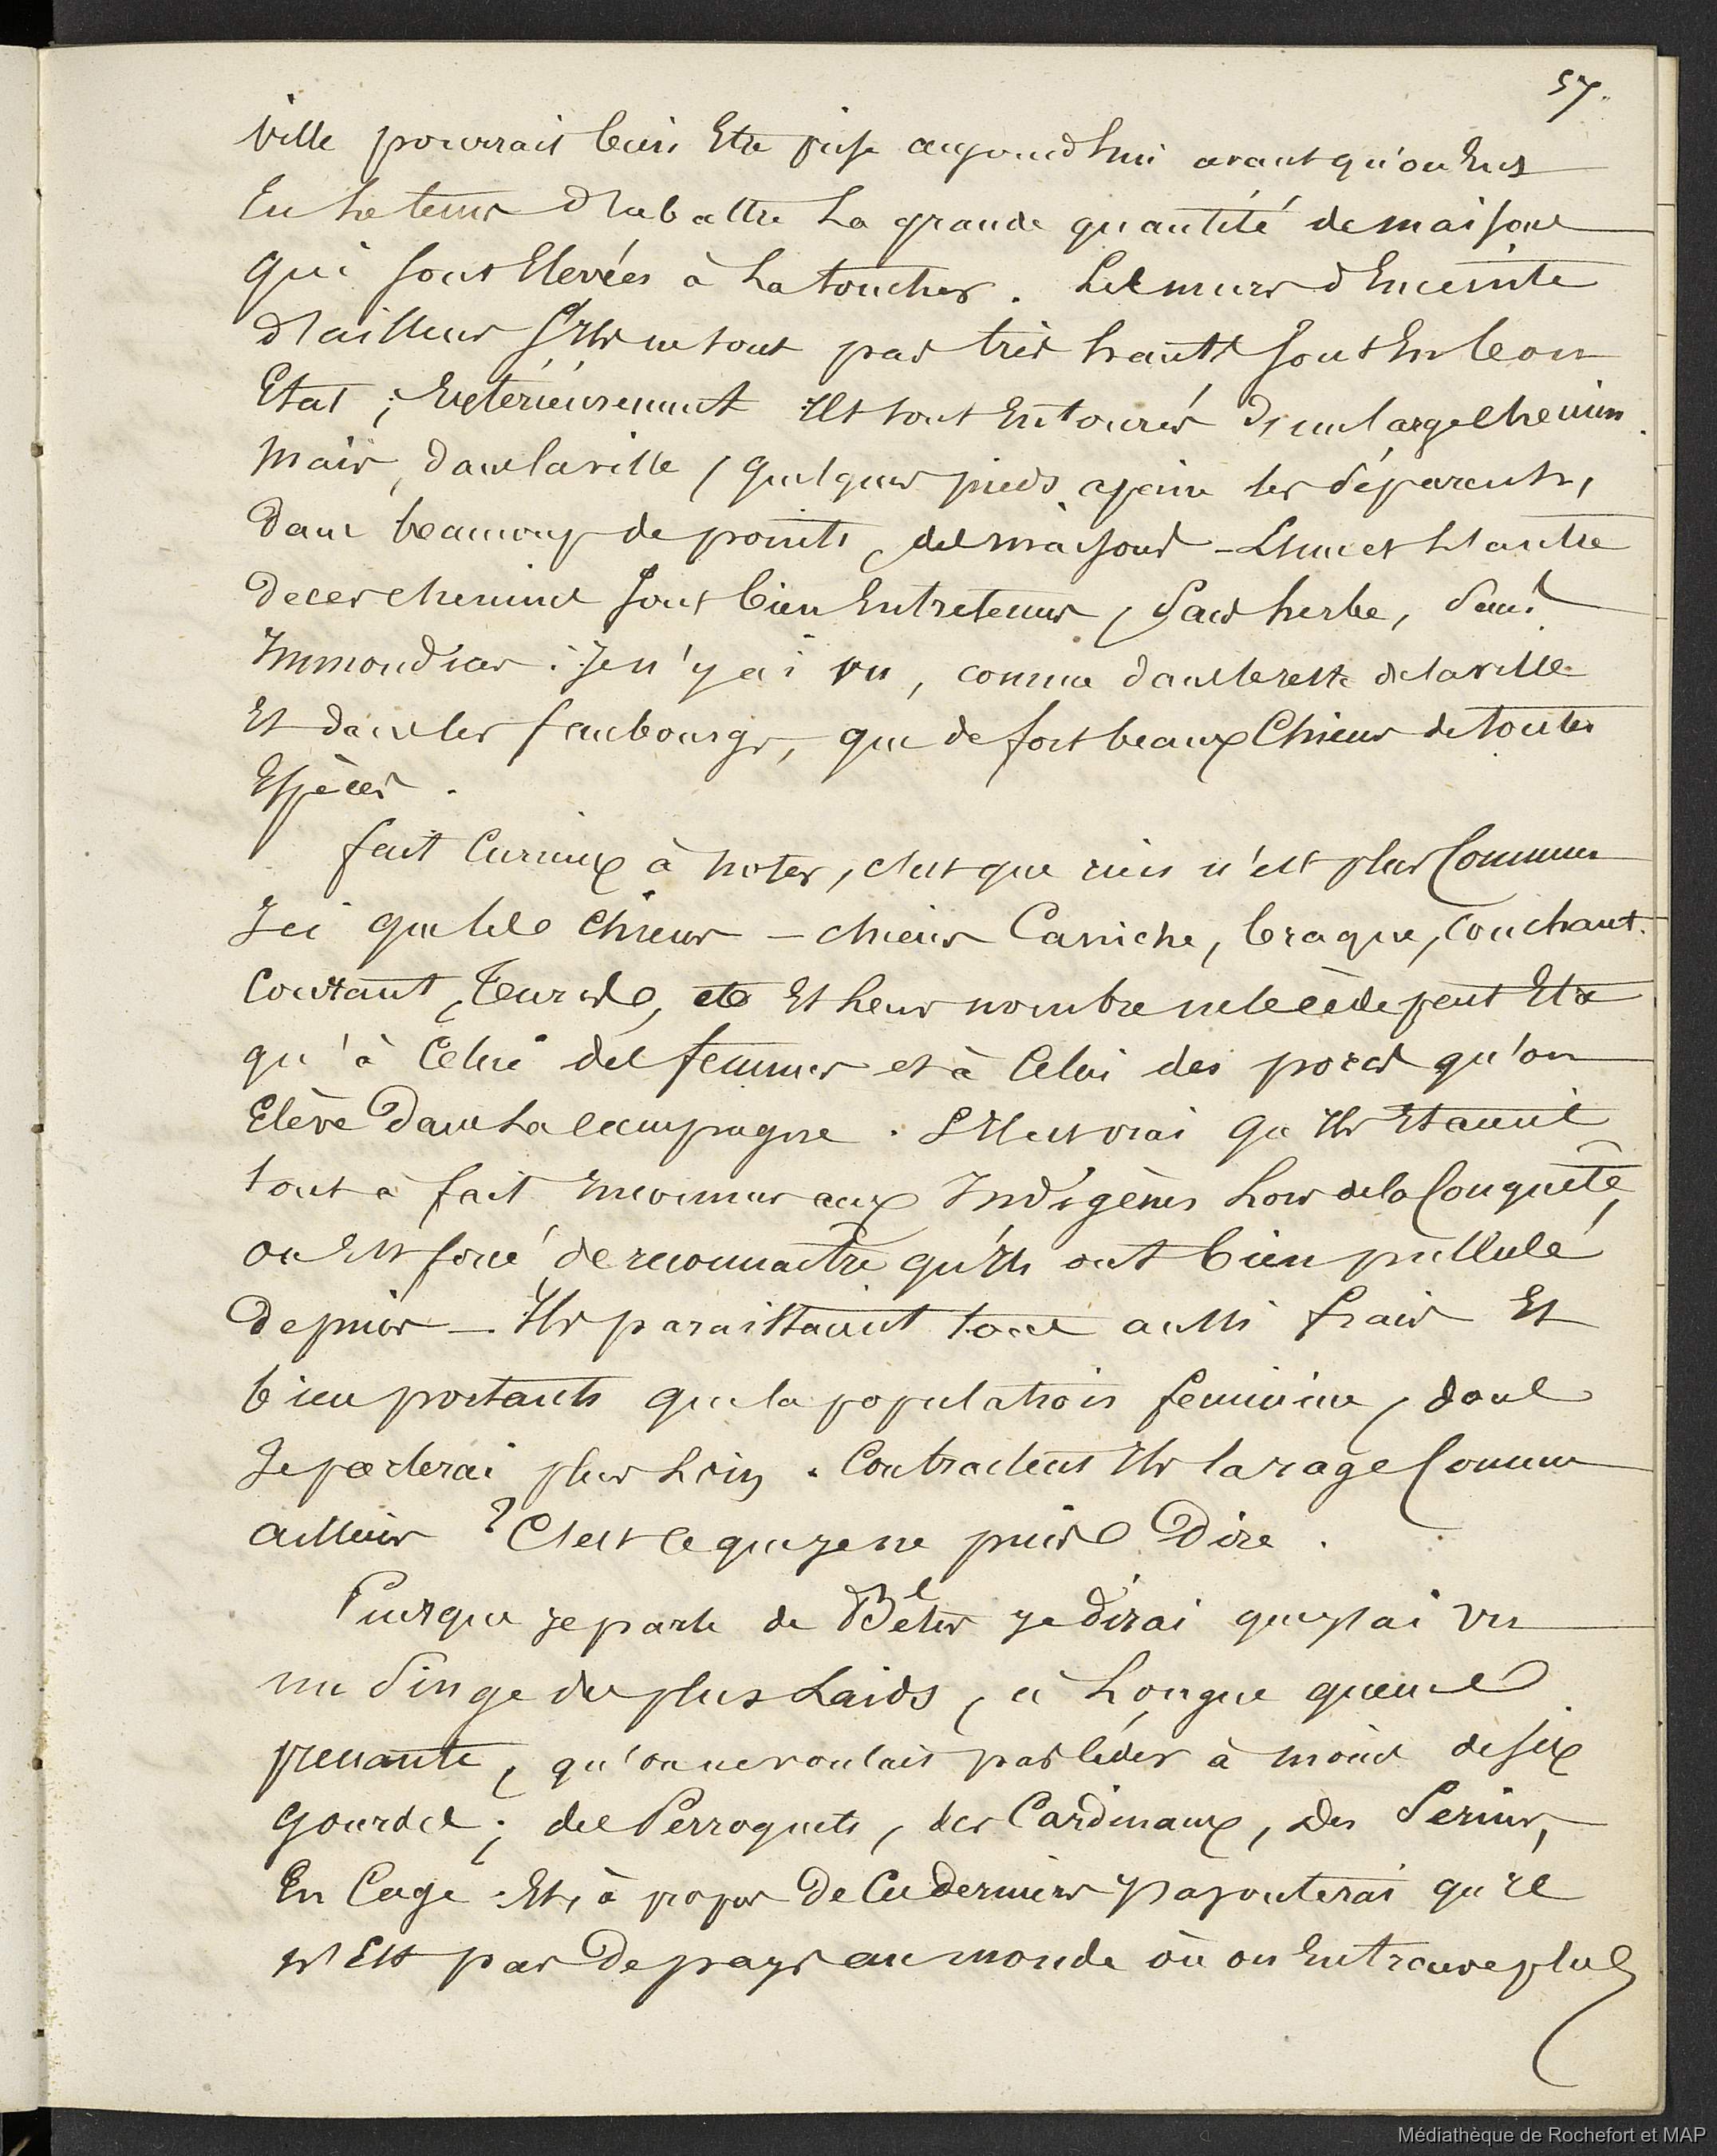 57.
Ville pourrait bien Etre prise aujourd'hui avant qu'on Eus
Eu le tems d'abattre La grande quantité de maisons
qui sont Elevées à La toucher. Les murs d'Enceinte
d'ailleurs s'Ils ne sont pas très hauts sont En bon
Etat ; Extérieurement Ils sont Entourés d'un large chemin
Mais, dans la ville, quelques pieds apeine les séparent,
Dans beaucoup de points, des maisons - L'un et L'autre
De ces chemins sont bien Entretenus, sans herbe, sans
Immondices : Je n'y ai vu, comme dans le reste de la ville
Et dans les faubourgs, que de fort beaux Chiens de toutes
Espèces.
fait Curieux à noter, c'est que rien n'est plus Commun
Ici que les Chiens - chiens Caniche, braque, couchant.
Courant, Terrede, etc Et leur nombre ne le cède peut Etre
qu'à Celui des femmes et à Celui des porcs qu'on
Elève Dans La campagne. S'Il est vrai qu'Ils Etaient
tout à fait Inconnus aux Indigènes Lors de la Conquête,
on Est forcé de reconnaitre qu'Ils ont bien pullulé
Depuis - Ils paraissaient tous aussi frais Et
bien portants que la population feminine, dont
Je parlerai plus Loin. Contractent Ils la rage Comme
ailleurs ? C'est ce que je ne puis Dire.
Puisque je parle de Bêtes je dirai que j'ai vu
un Singe des plus Laids, à Longue queue
prenante, qu'on ne voulait pas céder à moins de six
gourdes ; des Perroquets, des Cardinaux, des Serins,
En Cage. Et, à propos De Ces derniers j'ajouterai qu'il
n'Est pas De pays au monde où on En trouve plus
Médiathèque de Rochefort et MAP